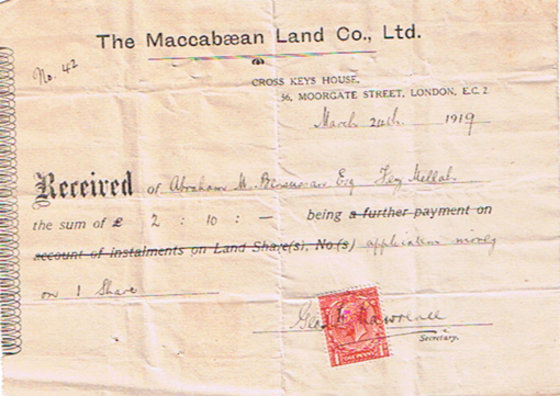 The Maccabæan Land Co., Ltd.
No. 42
CROSS KEYS HOUSE,
56, MOORGATE STREET, LONDON, E.C. 2
March 24th. 1919
Received of Abraham M. Bensusan Esq Fez Mellah
the sum of £ 2 : 10 : — being a further payment on
account of instalments on Land Share(s), No (s) application money
on 1 Share
Geo. Lawrence
Secretary.
ONE PENNY